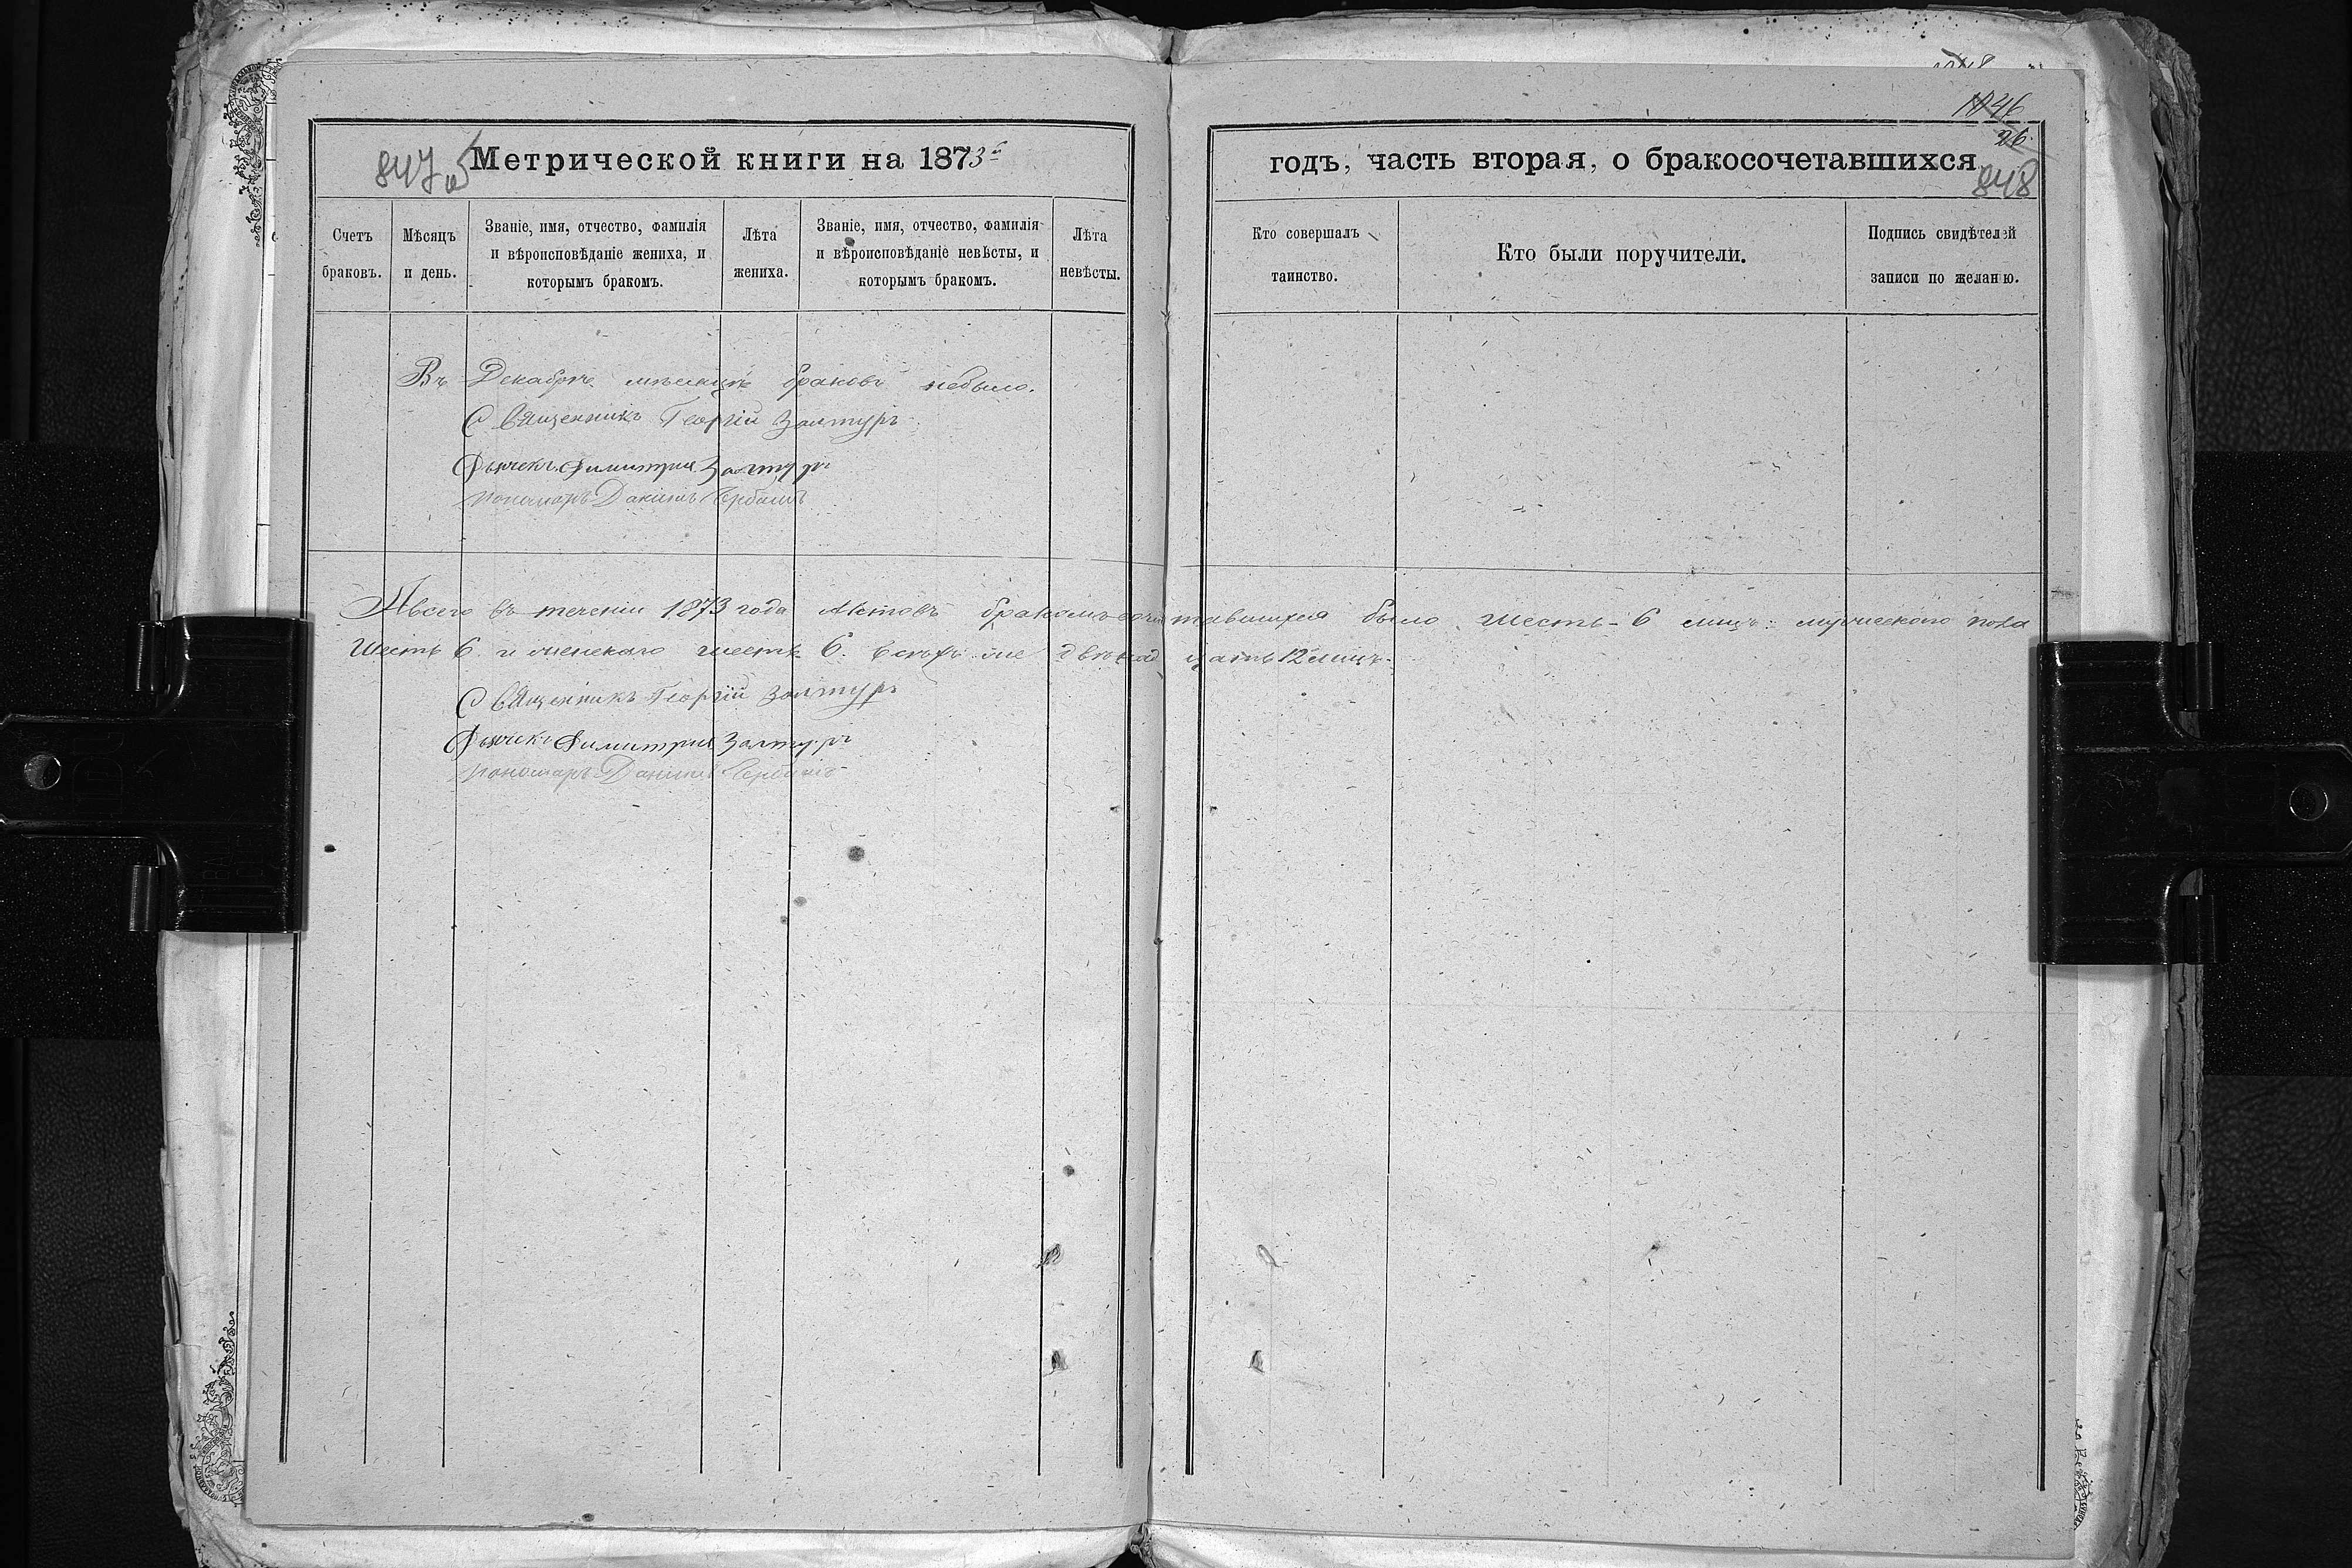 1046
26.
847 об
Метрической книги на 1873й
годъ, часть вторая, о бракосочетавшихся
848
Счетъ
браковъ.
Мѣсяцъ
и день.
Званіе, имя, отчество, фамилія
и вѣроисповѣданіе жениха, и
которымъ бракомъ.
Лѣта
жениха.
Званіе, имя, отчество, фамилія
и вѣроисповѣданіе невѣсты, и
которымъ бракомъ.
Лѣта
невѣсты.
Кто совершалъ
таинство.
Кто были поручители.
Подпись свидѣтелей
записи по желанію.
Въ Декабрѣ мѣсяцѣ браковъ небыло.
Священникъ Георгій Залтуръ
Дьячекъ Димитрій Залтуръ
пономарь Даніилъ
Авсего въ теченіи 1873 года Актовъ бракомъ сочетавшихся было шесть - 6 лицъ: мужескаго пола
шесть 6. и женскаго шесть 6. Всѣхъ же двенадцать 12 лицъ.
Священникъ Георгій Залтуръ
Дьячекъ Димитрій Залтуръ
пономарь Даніилъ